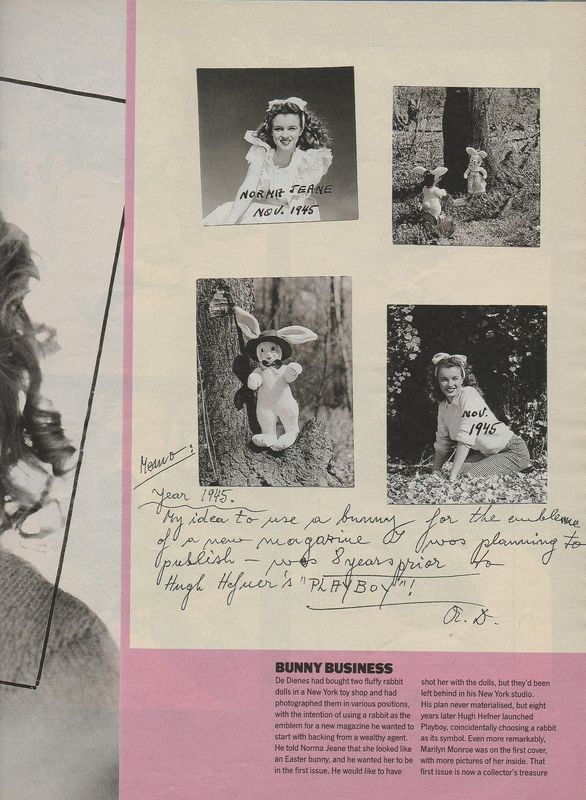 NORMA JEANE
NOV. 1945
NOV.
1945
Memo:
Year 1945.
My idea to use a bunny for the embleme
of a new magazine I was planning to
publish – was 8 years prior to
Hugh Hefner's "PLAYBOY"!
BUNNY BUSINESS
De Dienes had bought two fluffy rabbit
dolls in a New York toy shop and had
photographed them in various positions,
with the intention of using a rabbit as the
emblem for a new magazine he wanted to
start with backing from a wealthy agent.
He told Norma Jeane that she looked like
an Easter bunny, and he wanted her to be
in the first issue. He would like to have
shot her with the dolls, but they'd been
left behind in his New York studio.
His plan never materialised, but eight
years later Hugh Hefner launched
Playboy, coincidentally choosing a rabbit
as its symbol. Even more remarkably,
Marilyn Monroe was on the first cover,
with more pictures of her inside. That
first issue is now a collector's treasure